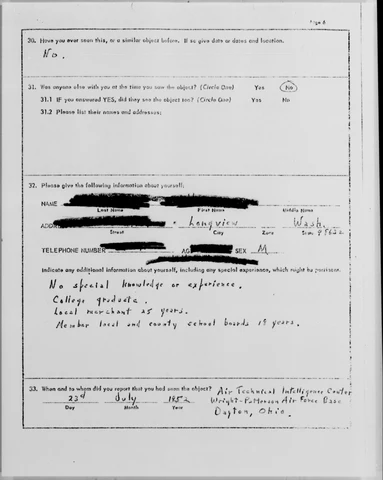 Page 8
30. Have you ever seen this, or a similar object before. If so give date or dates and location.
No.
31. Was anyone else with you at the time you saw the object? (Circle One) Yes No
31.1 IF you answered YES, did they see the object too? (Circle One) Yes No
31.2 Please list their names and addresses:
32. Please give the following information about yourself:
NAME
Last Name First Name Middle Name
Longview Wash.
Street City Zone State
TELEPHONE NUMBER SEX M
Indicate any additional information about yourself, including any special experience, which might be pertinent.
No special knowledge or experience.
College graduate.
Local merchant 25 years.
Member local and county school boards 18 years.
33. When and to whom did you report that you had seen the object? Air Technical Intelligence Center
23rd July 1952 Wright-Patterson Air Force Base
Day Month Year Dayton, Ohio.